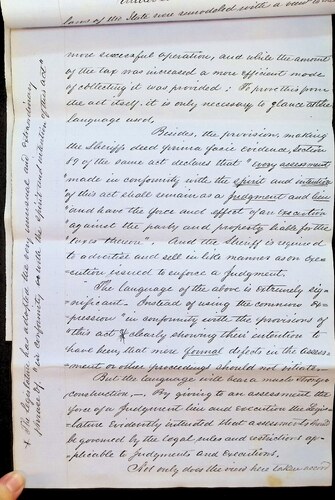 laws of the State were remodeled with a view to
more successful operation, and while the amount
of the tax was increased a more efficient mode
of collecting it was provided; To prove this from
the act itself, it is only necessary to glance at the
language used,
Besides, the provision making
the Sheriffs deed prima facie evidence, section
of the same act declares that "every assessment
"made in conformity with the spirit and intention
"of this act shall remain as a Judgment and lien
"and have the force and effect of an Execution
"against the party and property liable for the
"taxes thereon". And the Sheriff is required
to advertise and sell in like manner as on Exe-
-cution issued to enforce a Judgment.
The language of the above is extremely sig-
-nificant. Instead of using the common Ex-
-pression "in conformity with the provisions of
"this act" clearly showing their intention to
have been, that mere formal defects in the assess-
-ment or other proceedings should not vitiate.
But the language will bear a much stronger
construction,—. By giving to an assessment the
force of a Judgment lien and execution the Legis-
-lature Evidently intended that assessments should
be governed by the legal rules and restrictions ap-
-plicable to Judgments and Executions.
Not only does the view here taken accord
+ The legislature has adopted the very unusual and extraordinary
phrase of, "in conformity with the spirit and intention of this act"